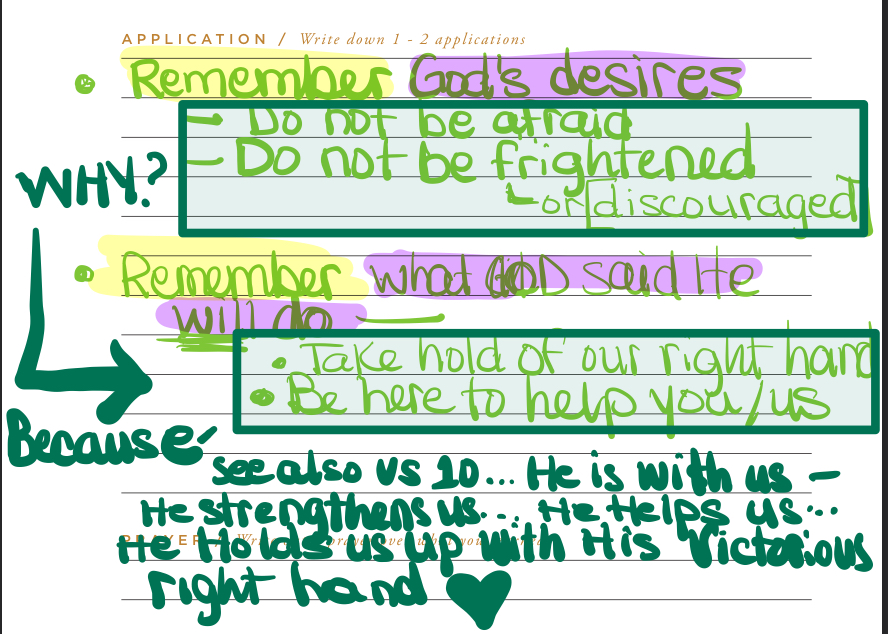 APPLICATION / Write down 1 - 2 applications
• Remember God's desires
→ Do not be afraid
- Do not be frightened
WHY?
or [discouraged]
• Remember what GOD said He
will do —
• Take hold of our right hand
• Be here to help you/us
Because
see also vs 10... He is with us -
He strengthens us... He Helps us...
PRAYER / Write
He Holds us up with His Victorious
right hand ♥